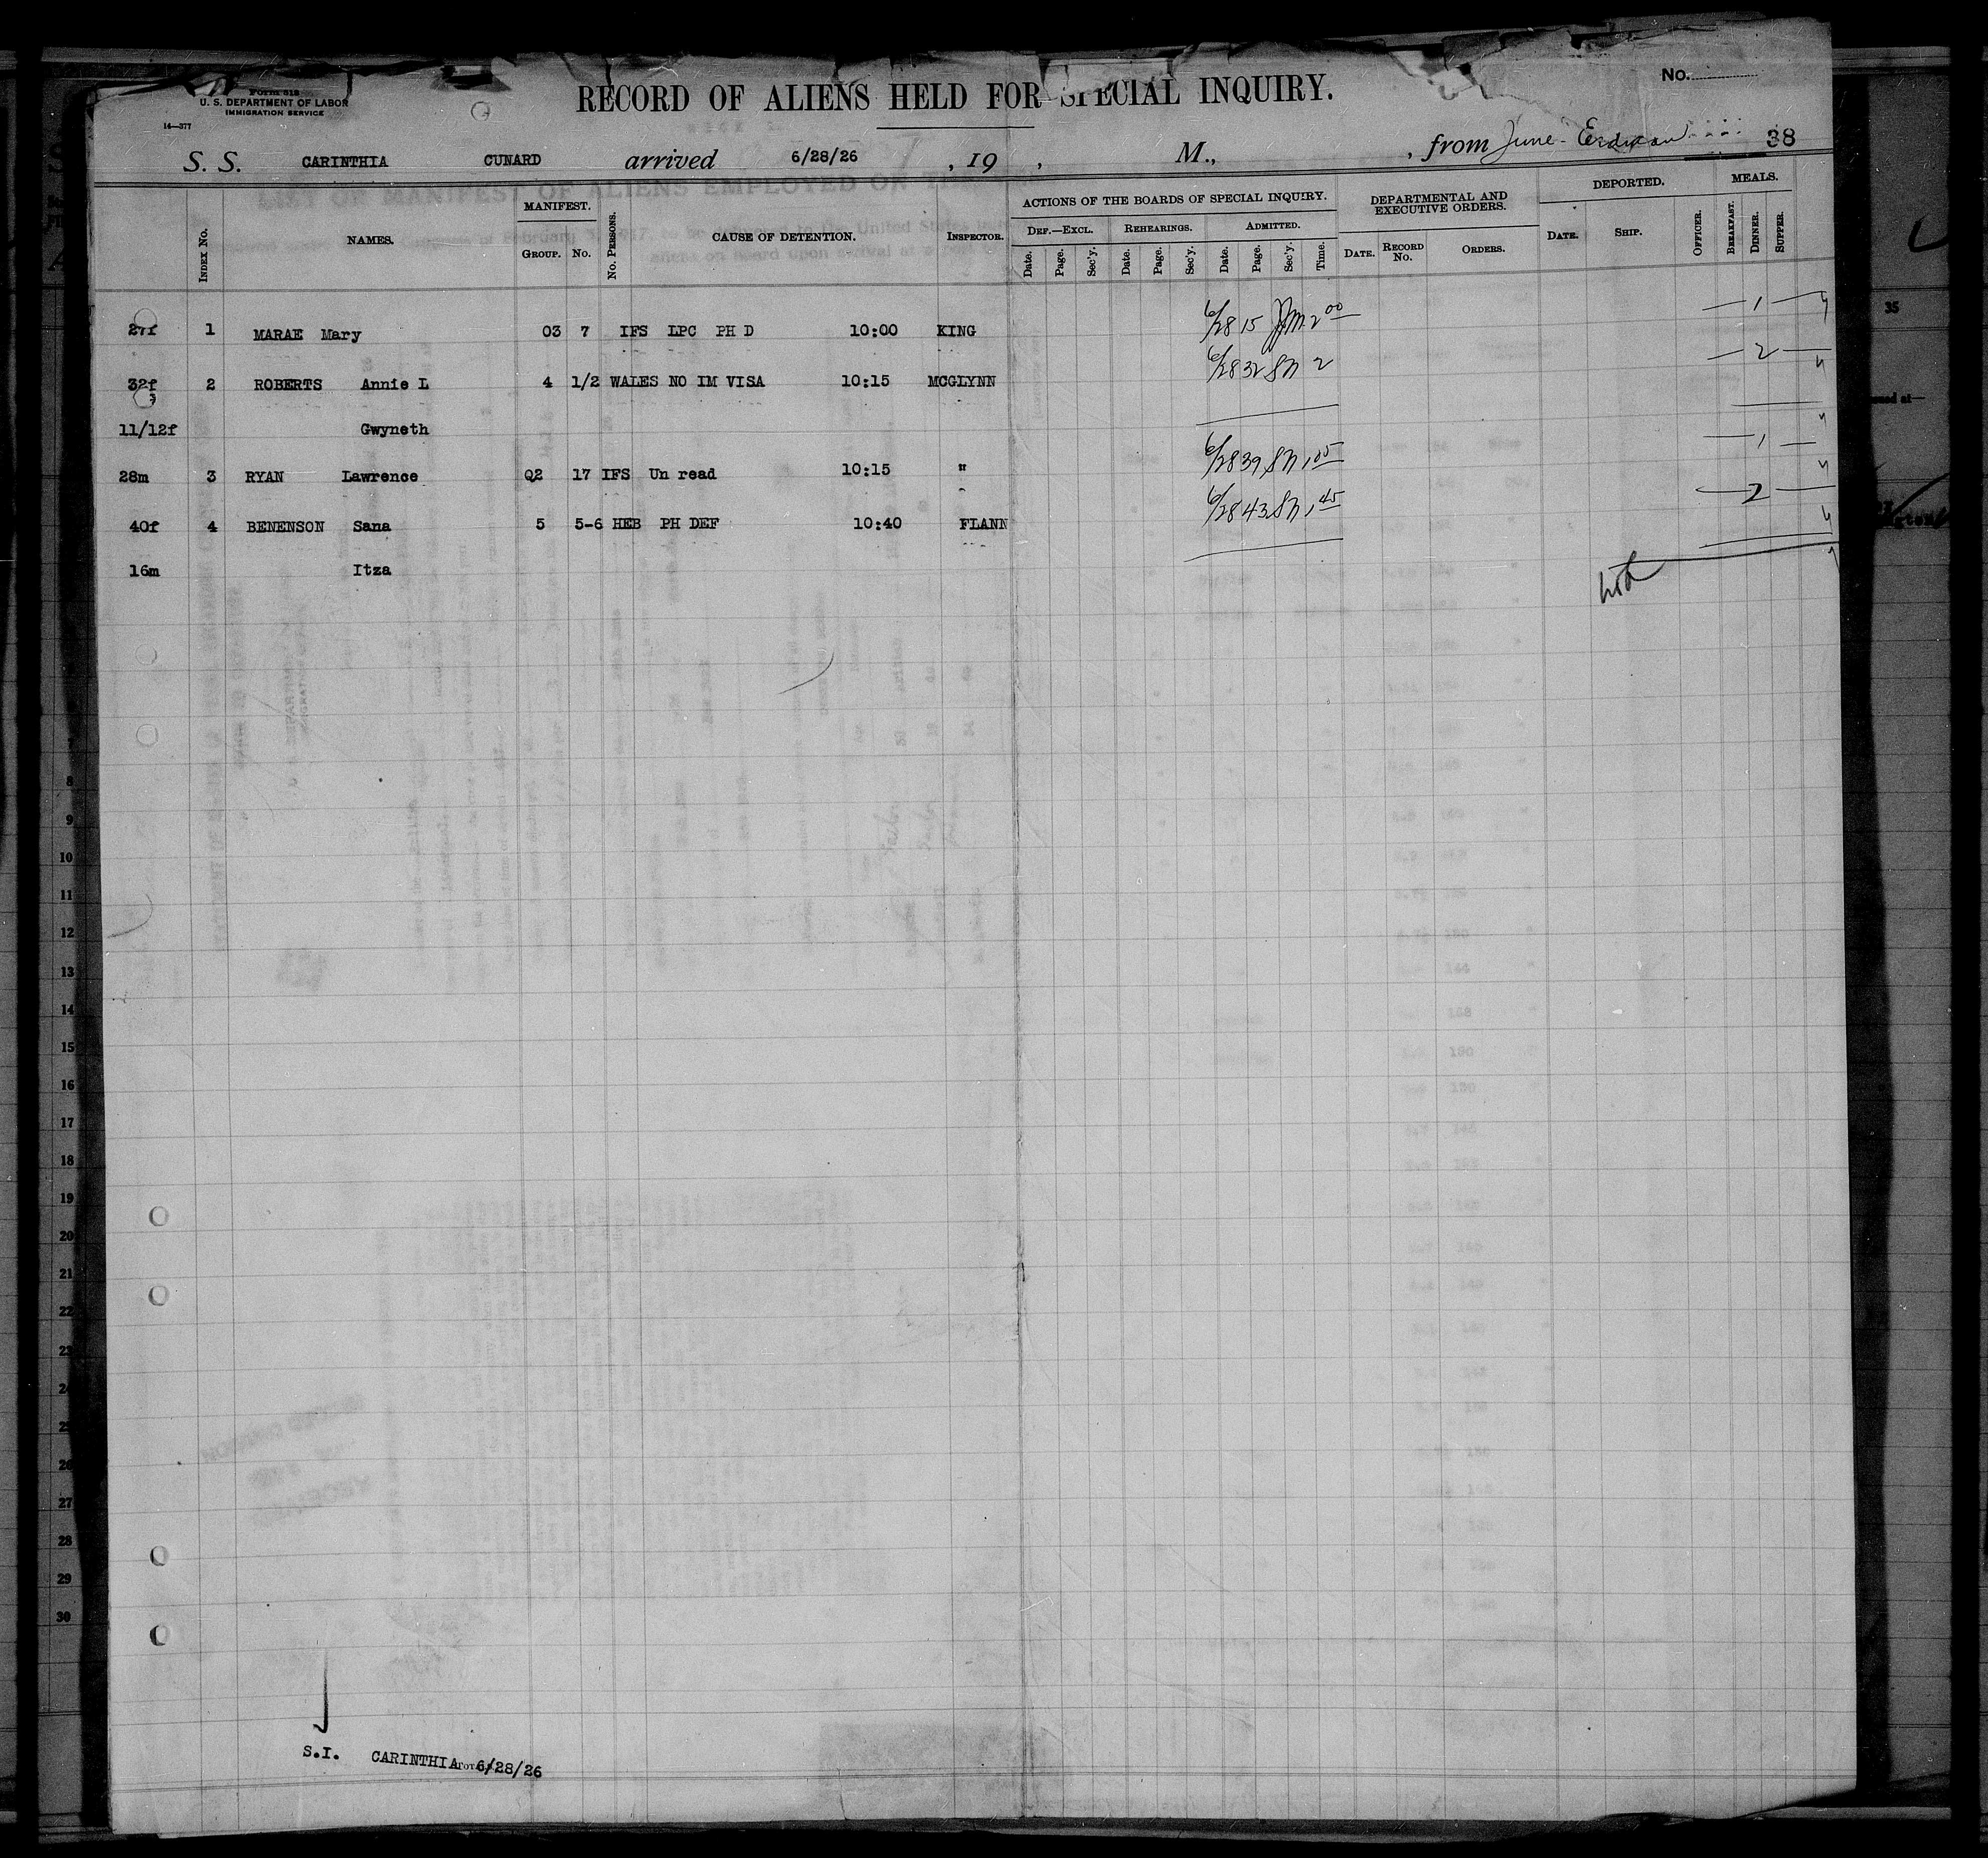 Form 518
U. S. DEPARTMENT OF LABOR
IMMIGRATION SERVICE
14—377
RECORD OF ALIENS HELD FOR SPECIAL INQUIRY.
No.
S. S. CARINTHIA CUNARD arrived 6/28/26 , 19 , M., , from June - Erdman 38
INDEX No.
NAMES.
MANIFEST.
GROUP. No.
No. PERSONS.
CAUSE OF DETENTION.
INSPECTOR.
ACTIONS OF THE BOARDS OF SPECIAL INQUIRY.
DEF.—EXCL. REHEARINGS. ADMITTED.
Date. Page. Sec'y. Date. Page. Sec'y. Date. Page. Sec'y. Time.
DEPARTMENTAL AND
EXECUTIVE ORDERS.
DATE. RECORD No. ORDERS.
DEPORTED.
DATE. SHIP.
OFFICER.
MEALS.
BREAKFAST. DINNER. SUPPER.
27f 1 MARAE Mary 03 7 IFS LPC PH D 10:00 KING 6/28 15 2 00 1
32f 2 ROBERTS Annie L 4 1/2 WALES NO IM VISA 10:15 MCGLYNN 6/28 32 SN 2 2
11/12f Gwyneth
28m 3 RYAN Lawrence Q2 17 IFS Un read 10:15 " 6/28 39 SN 1 05 1
40f 4 BENENSON Sana 5 5-6 HEB PH DEF 10:40 FLANN 6/28 43 SN 1 45 2
16m Itza
35
8
9
10
11
12
13
14
15
16
17
18
19
20
21
22
23
24
25
26
27
28
29
30
S.I. CARINTHIA 6/28/26